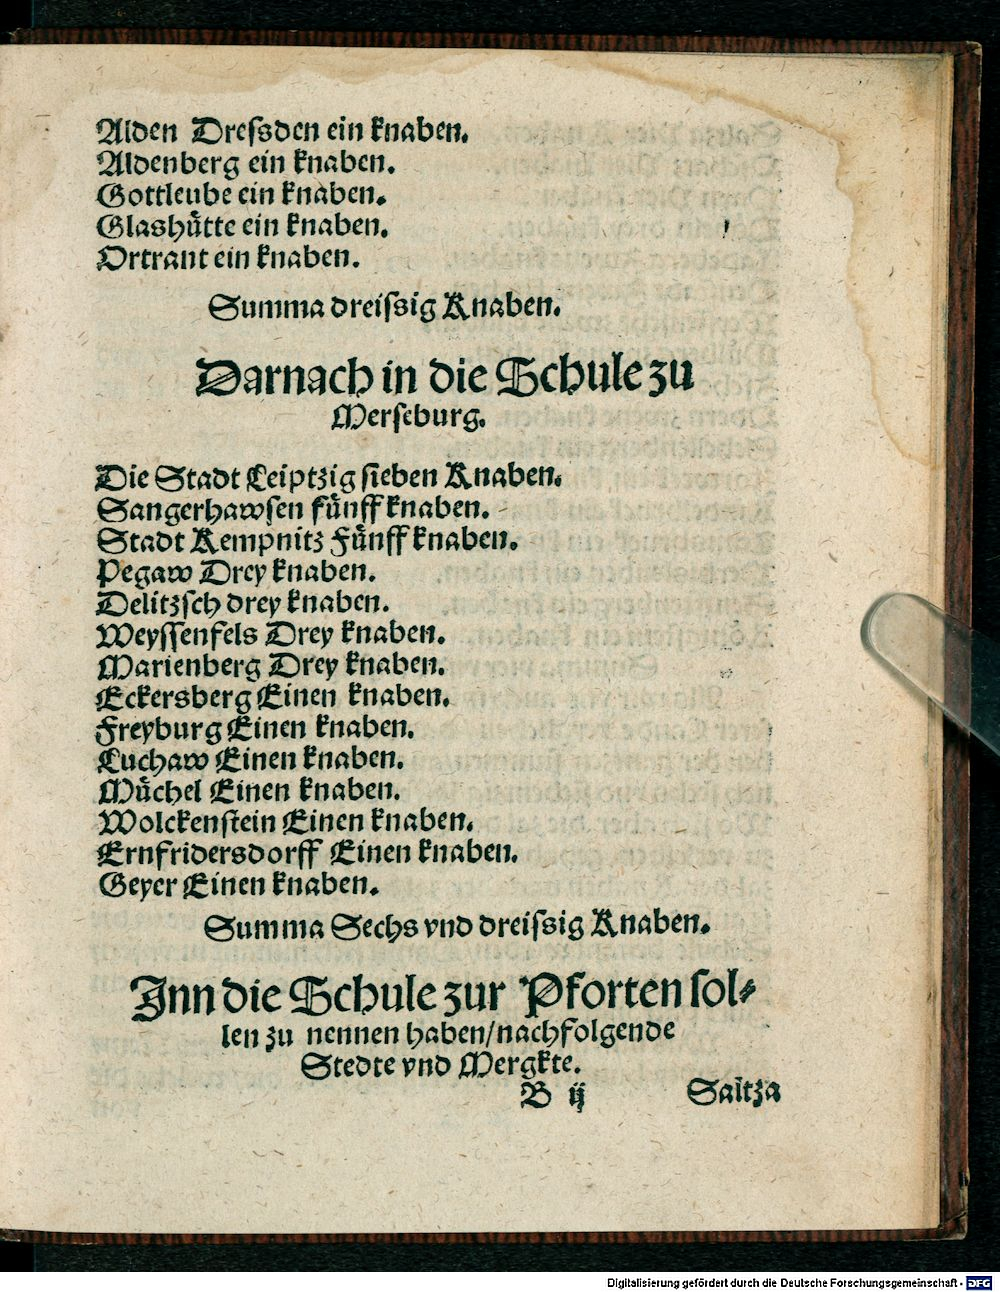 Alden Dreſsden ein knaben.
Aldenberg ein knaben.
Gottleube ein knaben.
Glashuͤtte ein knaben.
Ortrant ein knaben.
Summa dreiſsig Knaben.
Darnach in die Schule zu
Merſeburg.
Die Stadt Leiptzig ſieben Knaben.
Sangerhawſen fuͤnff knaben.
Stadt Kempnitz Fuͤnff knaben.
Pegaw Drey knaben.
Delitzſch drey knaben.
Weyſſenfels Drey knaben.
Marienberg Drey knaben.
Eckersberg Einen knaben.
Freyburg Einen knaben.
Luchaw Einen knaben.
Muͤchel Einen knaben.
Wolckenſtein Einen knaben.
Ernfridersdorff Einen knaben.
Geyer Einen knaben.
Summa Sechs vnd dreiſsig Knaben.
Inn die Schule zur Pforten ſol⸗
len zu nennen haben/nachfolgende
Stedte vnd Mergkte.
B ij Saltza
Digitalisierung gefördert durch die Deutsche Forschungsgemeinschaft - DFG